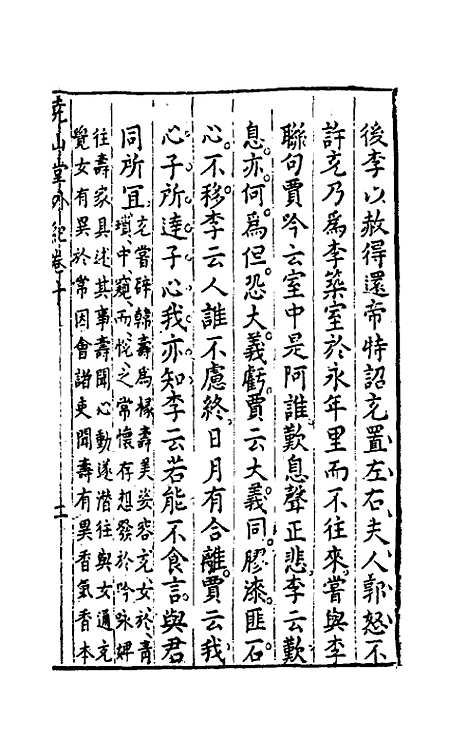 後李以赦得還帝特詔充置左右夫人郭怒不
許充乃爲李築室於永年里而不往來嘗與李
聯句賈吟云室中是阿誰歎息聲正悲李云歎
息亦何爲但恐大義虧賈云大義同膠漆匪石
心不移李云人誰不慮終日月有合離賈云我
心子所達子心我亦知李云若能不食言與君
同所宜
充嘗辟韓壽爲掾壽美姿容充女於青
瑣中窺而悅之常懷存想發於吟咏婢
往壽家具述其事壽聞心動遂潛往與女通充
覺女有異於常因會諸吏聞壽有異香氣香本
堯山堂外紀卷十
二